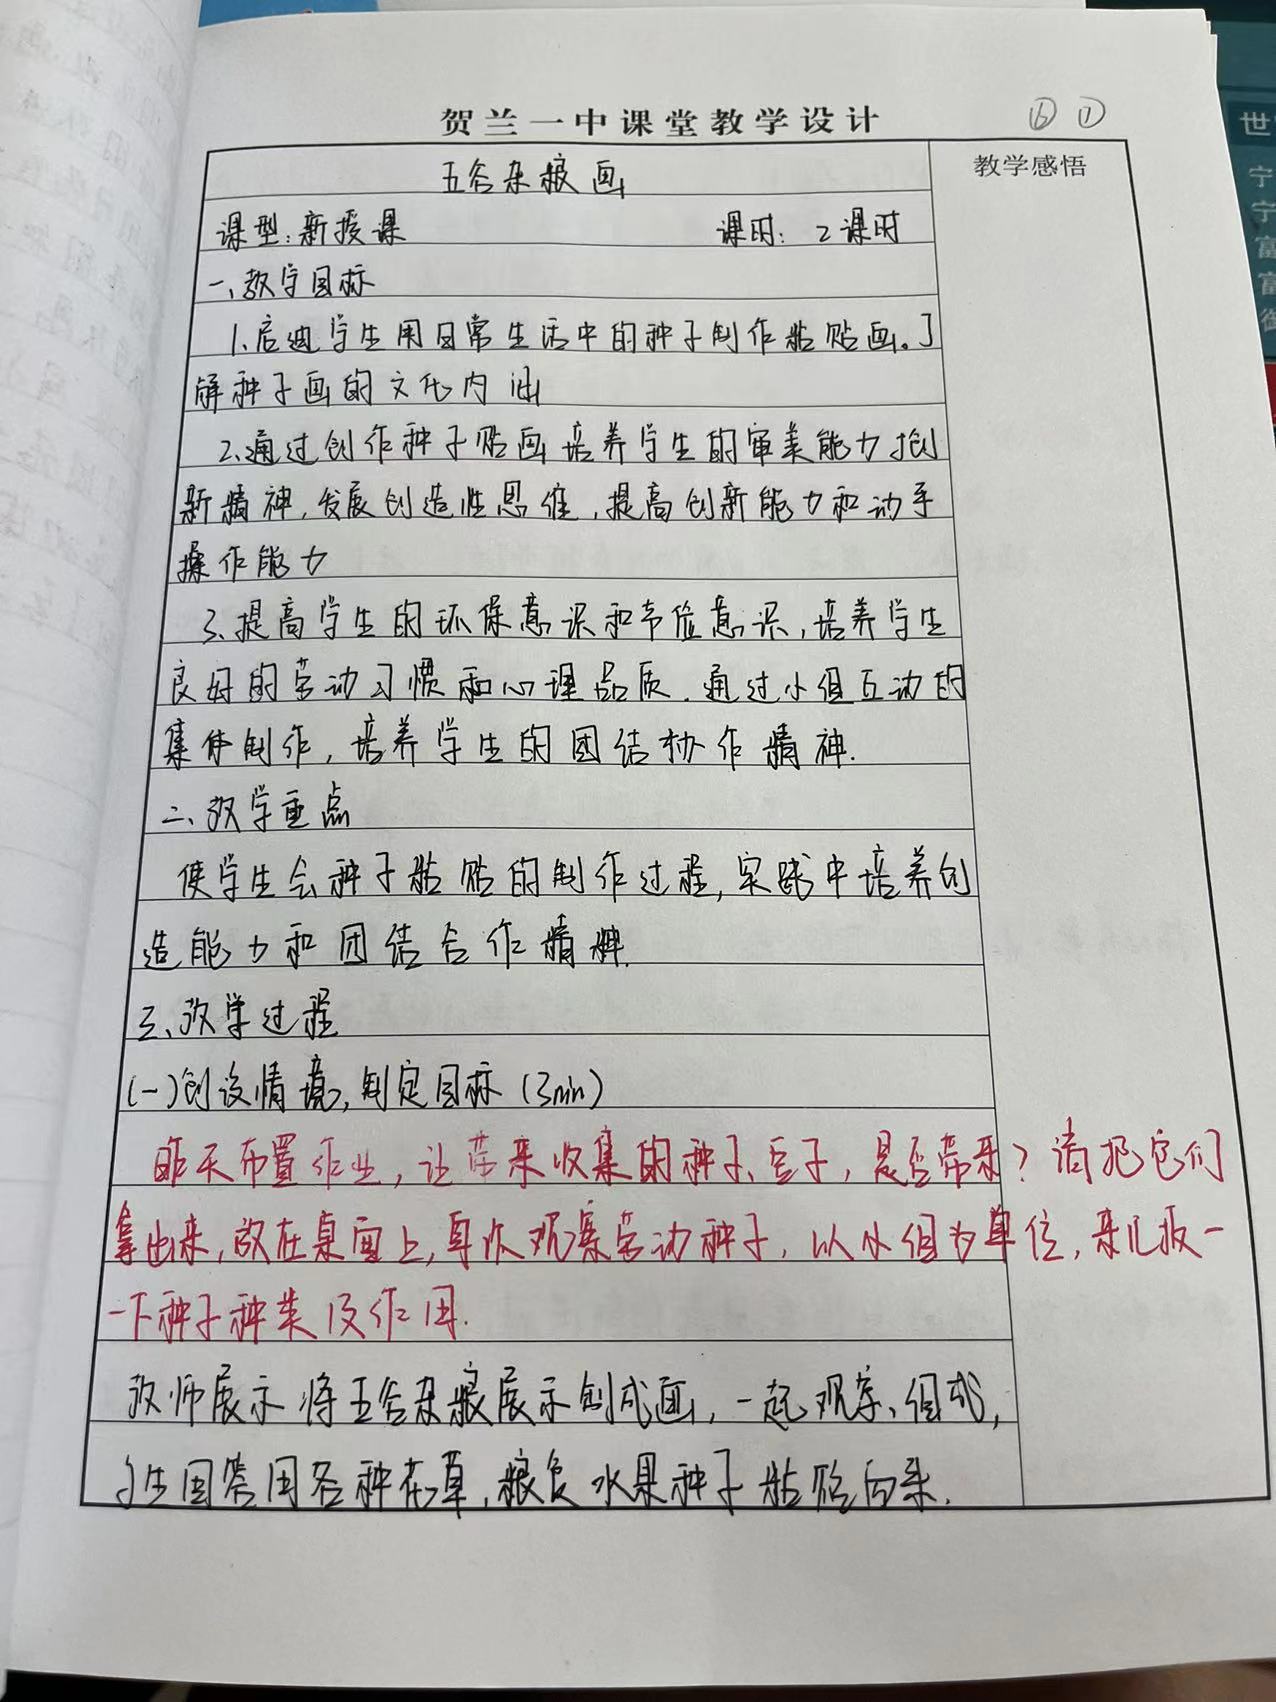 贺兰一中课堂教学设计
⑥ ①
五谷杂粮画
教学感悟
课型：新授课 课时：2课时
一、教学目标
1、启迪学生用日常生活中的种子制作粘贴画。了
解种子画的文化内涵
2、通过创作种子贴画培养学生的审美能力和创
新精神，发展创造性思维，提高创新能力和动手
操作能力
3、提高学生的环保意识和节俭意识，培养学生
良好的劳动习惯和心理品质．通过小组互动的
集体制作，培养学生的团结协作精神．
二、教学重点
使学生会种子粘贴的制作过程，实践中培养创
造能力和团结合作精神．
三、教学过程
(一)创设情境，制定目标（3min）
昨天布置作业，让带来收集的种子、豆子，是否带来？请把它们
拿出来，放在桌面上，再次观察劳动种子，以小组为单位，来汇报一
一下种子种类及作用．
教师展示将五谷杂粮展示创成画，一起观察、组成，
学生回答用各种花草，粮食水果种子粘贴而来．
世
宁
宁
富
富